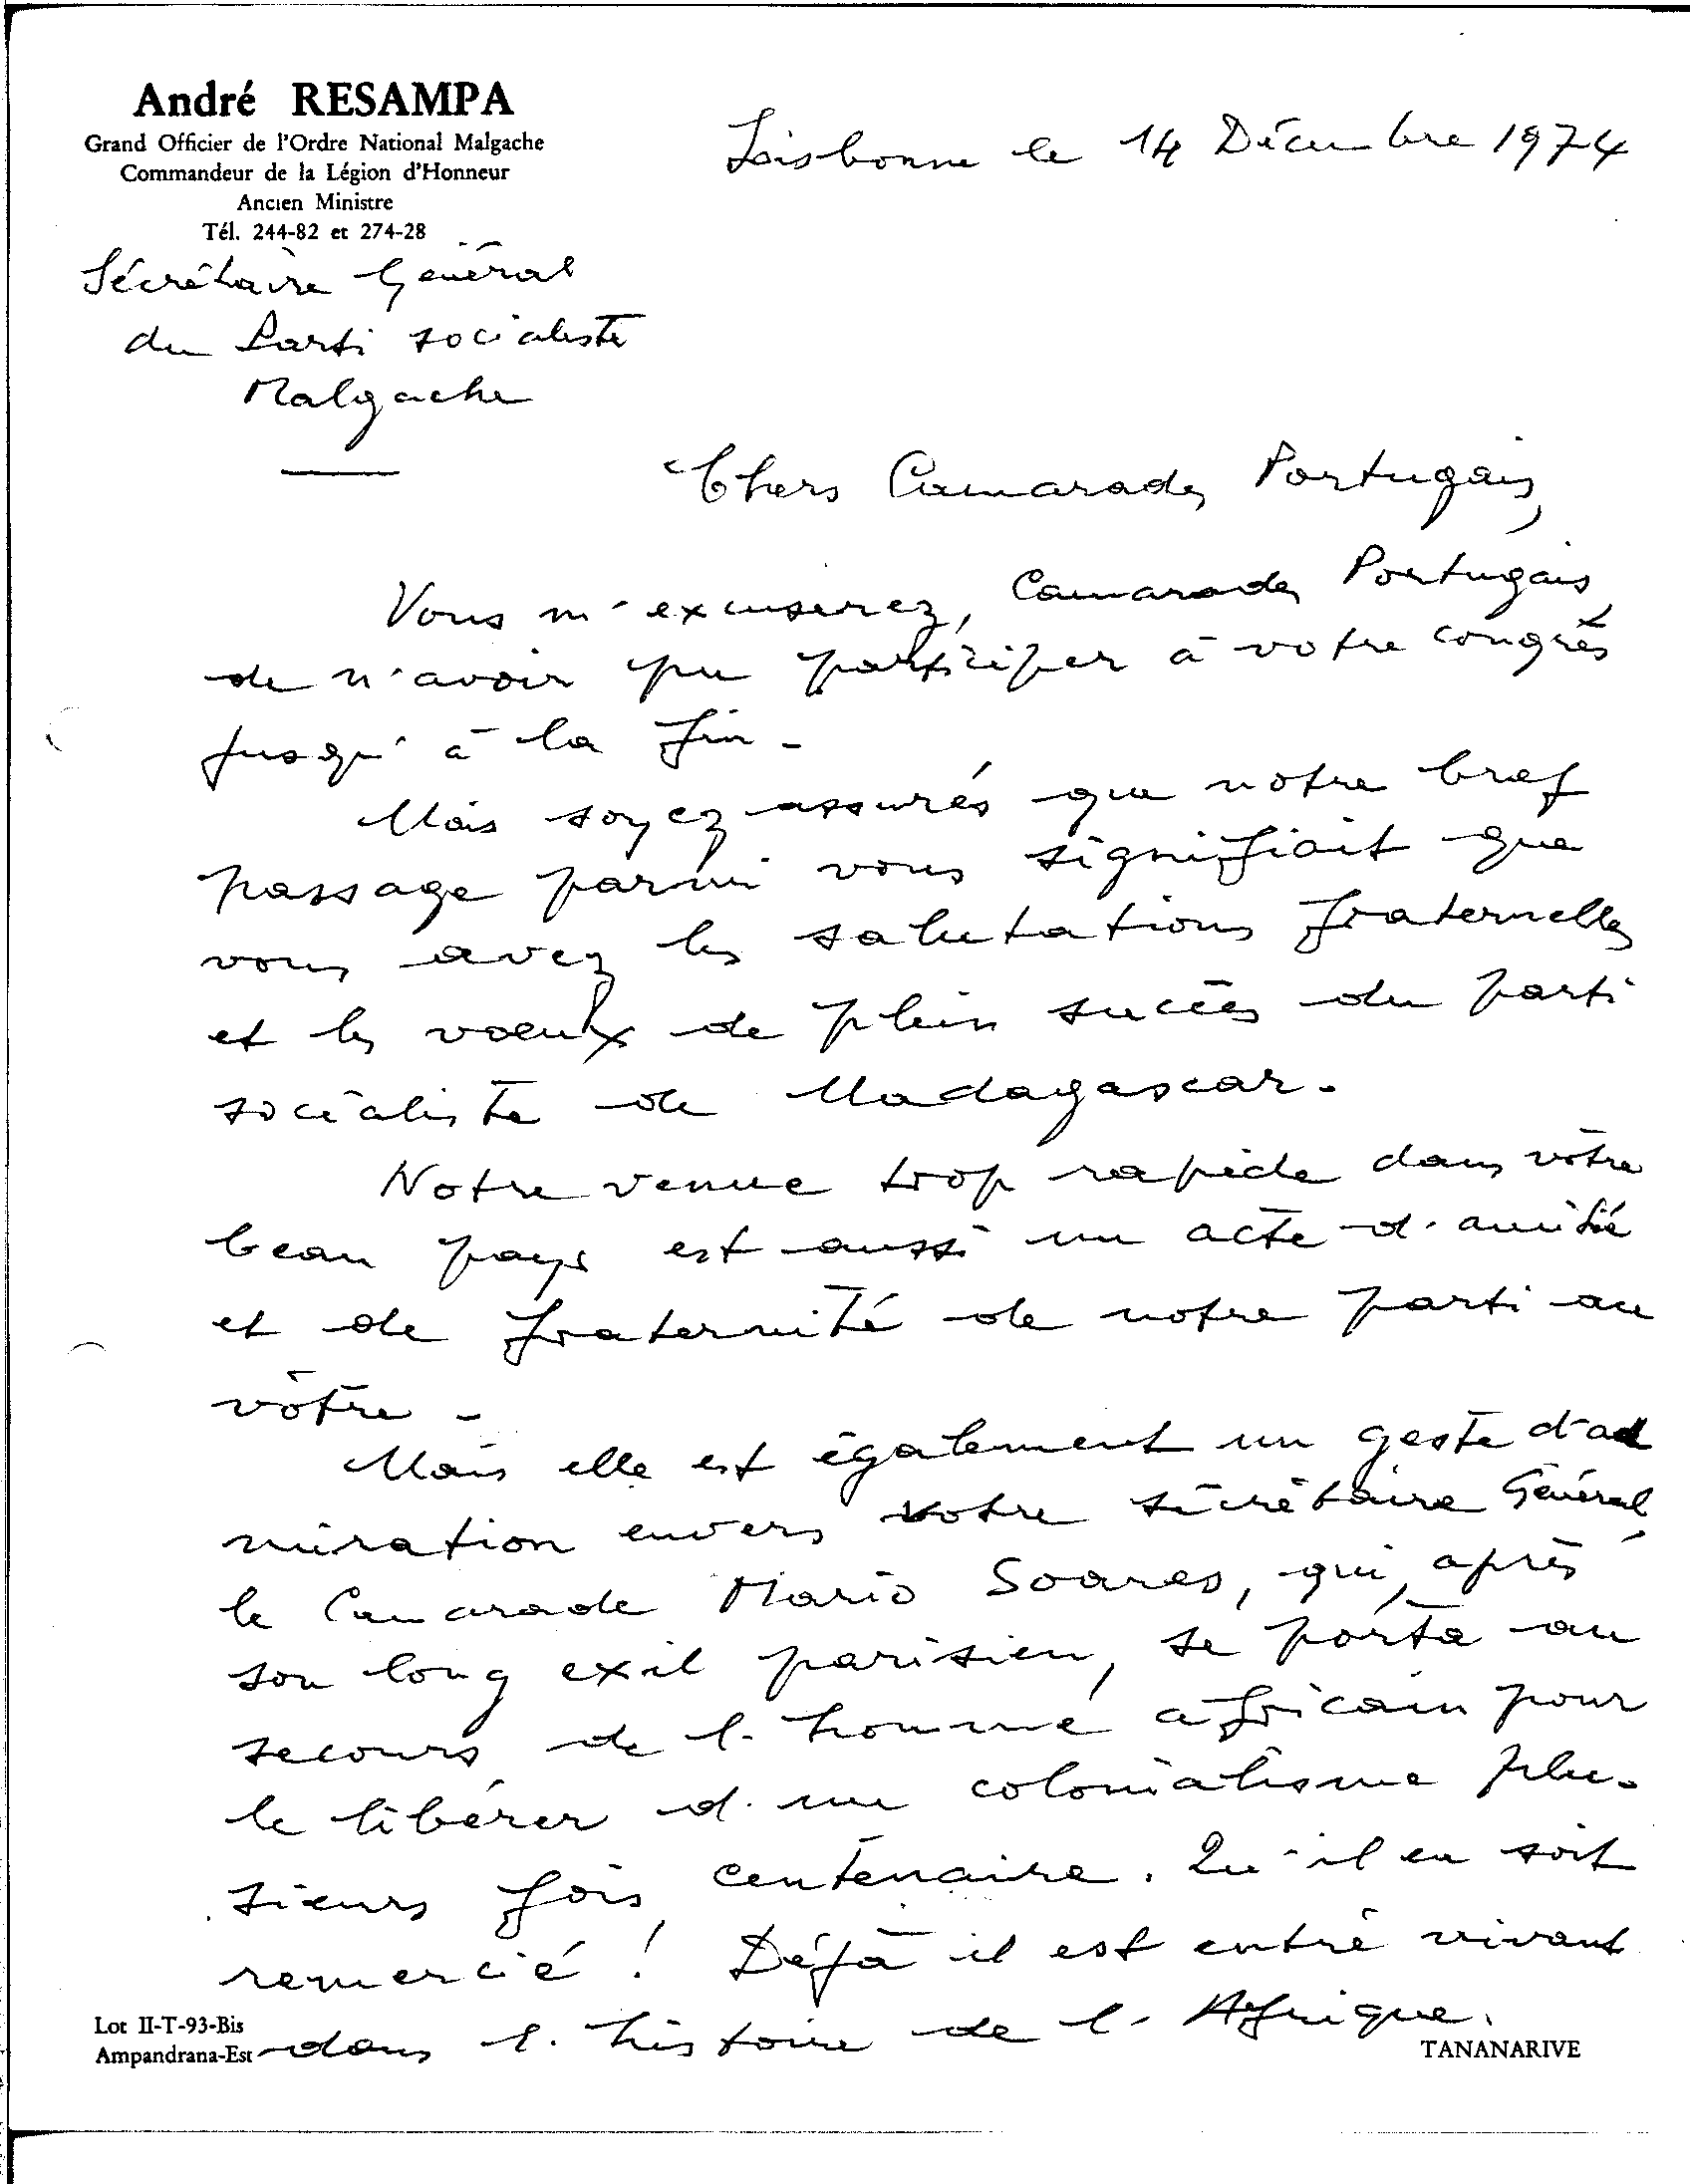 André RESAMPA
Grand Officier de l'Ordre National Malgache
Commandeur de la Légion d'Honneur
Ancien Ministre
Tél. 244-82 et 274-28
Sécrétaire Général
du Parti socialiste
Malgache
Lisbonne le 14 Décembre 1974
Chers Camarades Portugais,
Vous m'excuserez, Camarades Portugais,
de n'avoir pu participer à votre congrès
jusqu'à la fin -
Mais soyez assurés que notre bref
passage parmi vous signifiait que
vous avez les salutations fraternelles
et les voeux de plein succès du parti
socialiste de Madagascar.
Notre venue trop rapide dans vôtre
beau pays est aussi un acte d'amitié
et de fraternité de notre parti au
vôtre -
Mais elle est également un geste d'ad
miration envers votre sécrétaire Général,
le Camarade Mario Soares, qui, après
son long exil parisien, se porta au
secours de l'homme africain pour
le libérer d'un colonialisme plu-
sieurs fois centenaire. Qu'il en soit
remercié ! Déjà il est entré vivant
dans l'histoire de l'Afrique.
Lot II-T-93-Bis
Ampandrana-Est
TANANARIVE